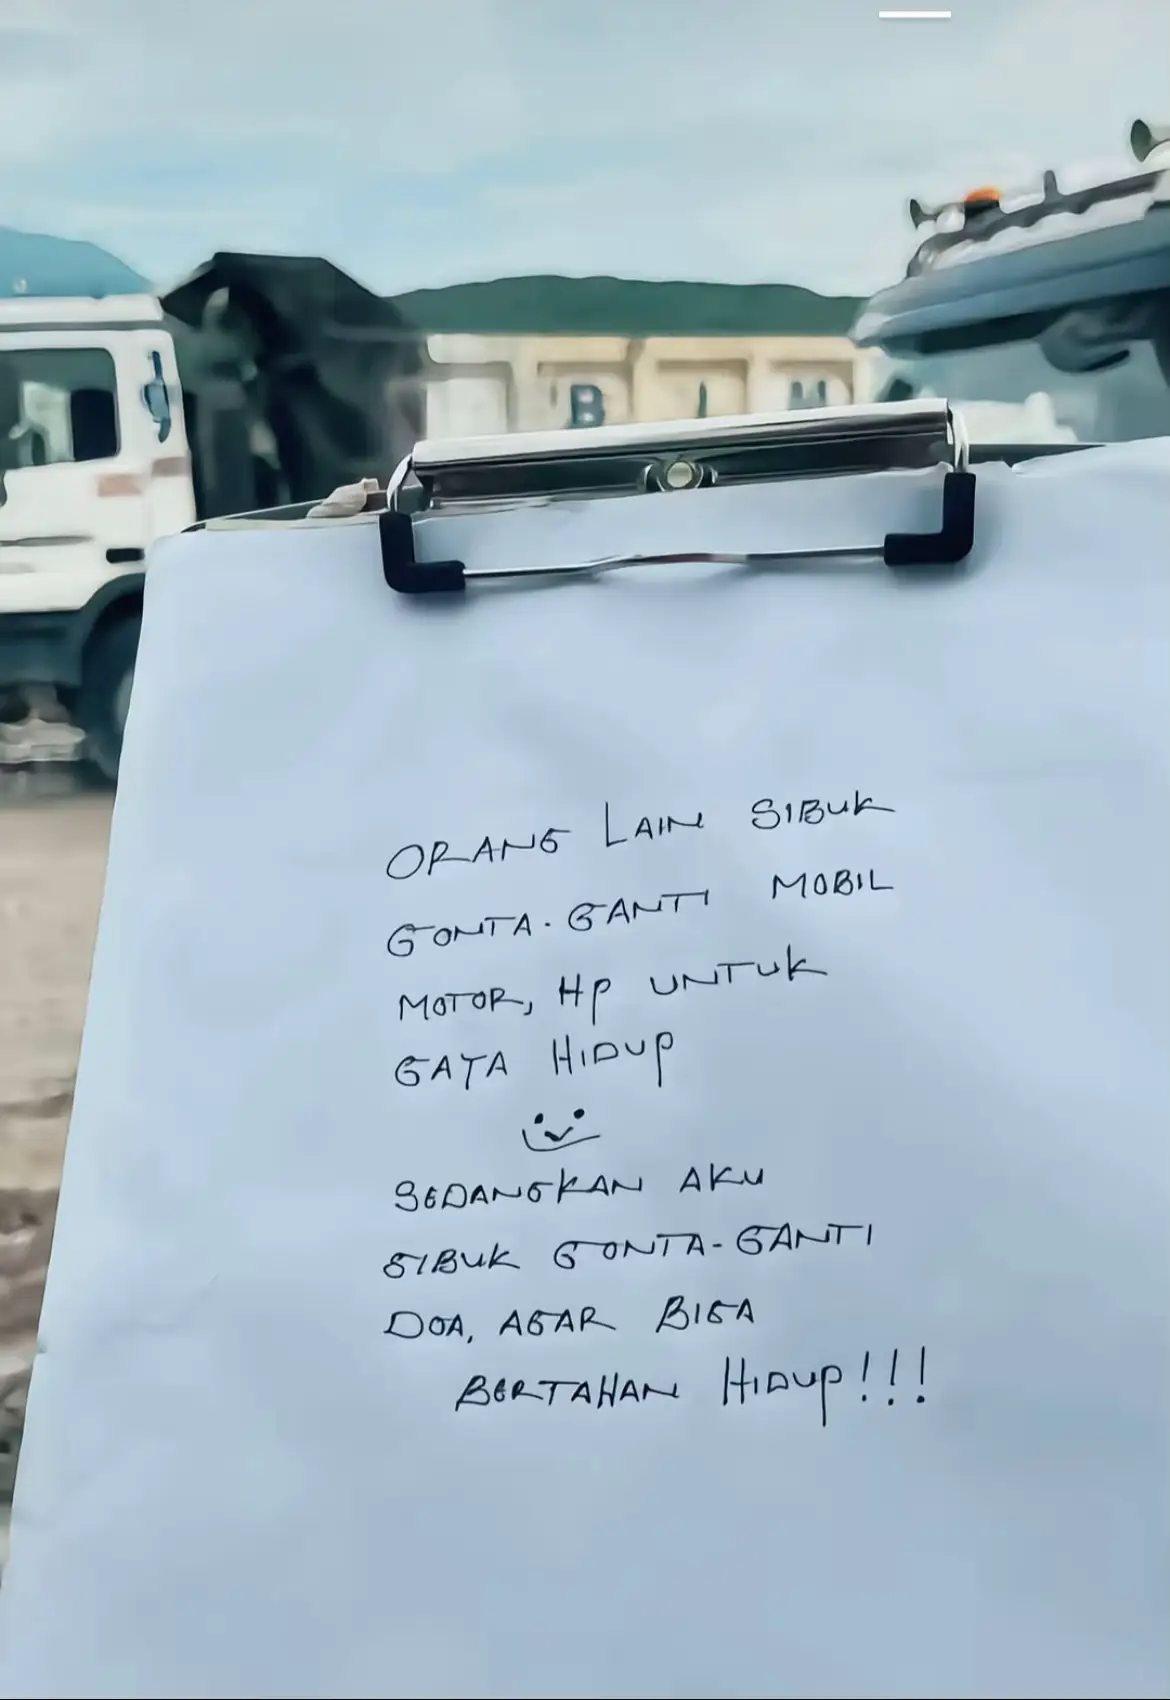 B I M
ORANG LAIN SIBUK
GONTA-GANTI MOBIL
MOTOR, HP UNTUK
GAYA HIDUP
SEDANGKAN AKU
SIBUK GONTA-GANTI
DOA, AGAR BISA
BERTAHAN HIDUP!!!